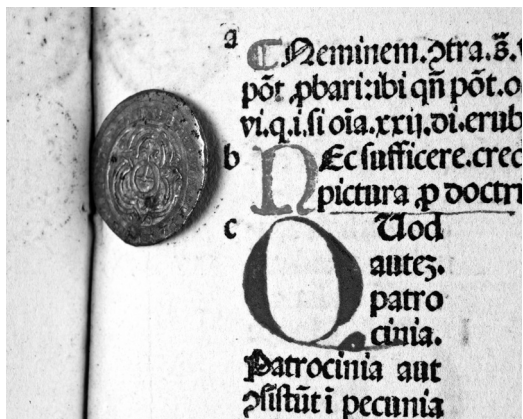 a
¶Neminem.ꝯtra.s̄.
põt ꝓbari:ibi qñ põt.o
vi.q.i.ſi oĩa.xxij.di.erub
b
NEc ſufficere.cred
pictura ꝓ doctri
c
QUod
auteʒ.
patro
cinia.
Patrocinia aut
ꝯſiſtũt ĩ pecunia